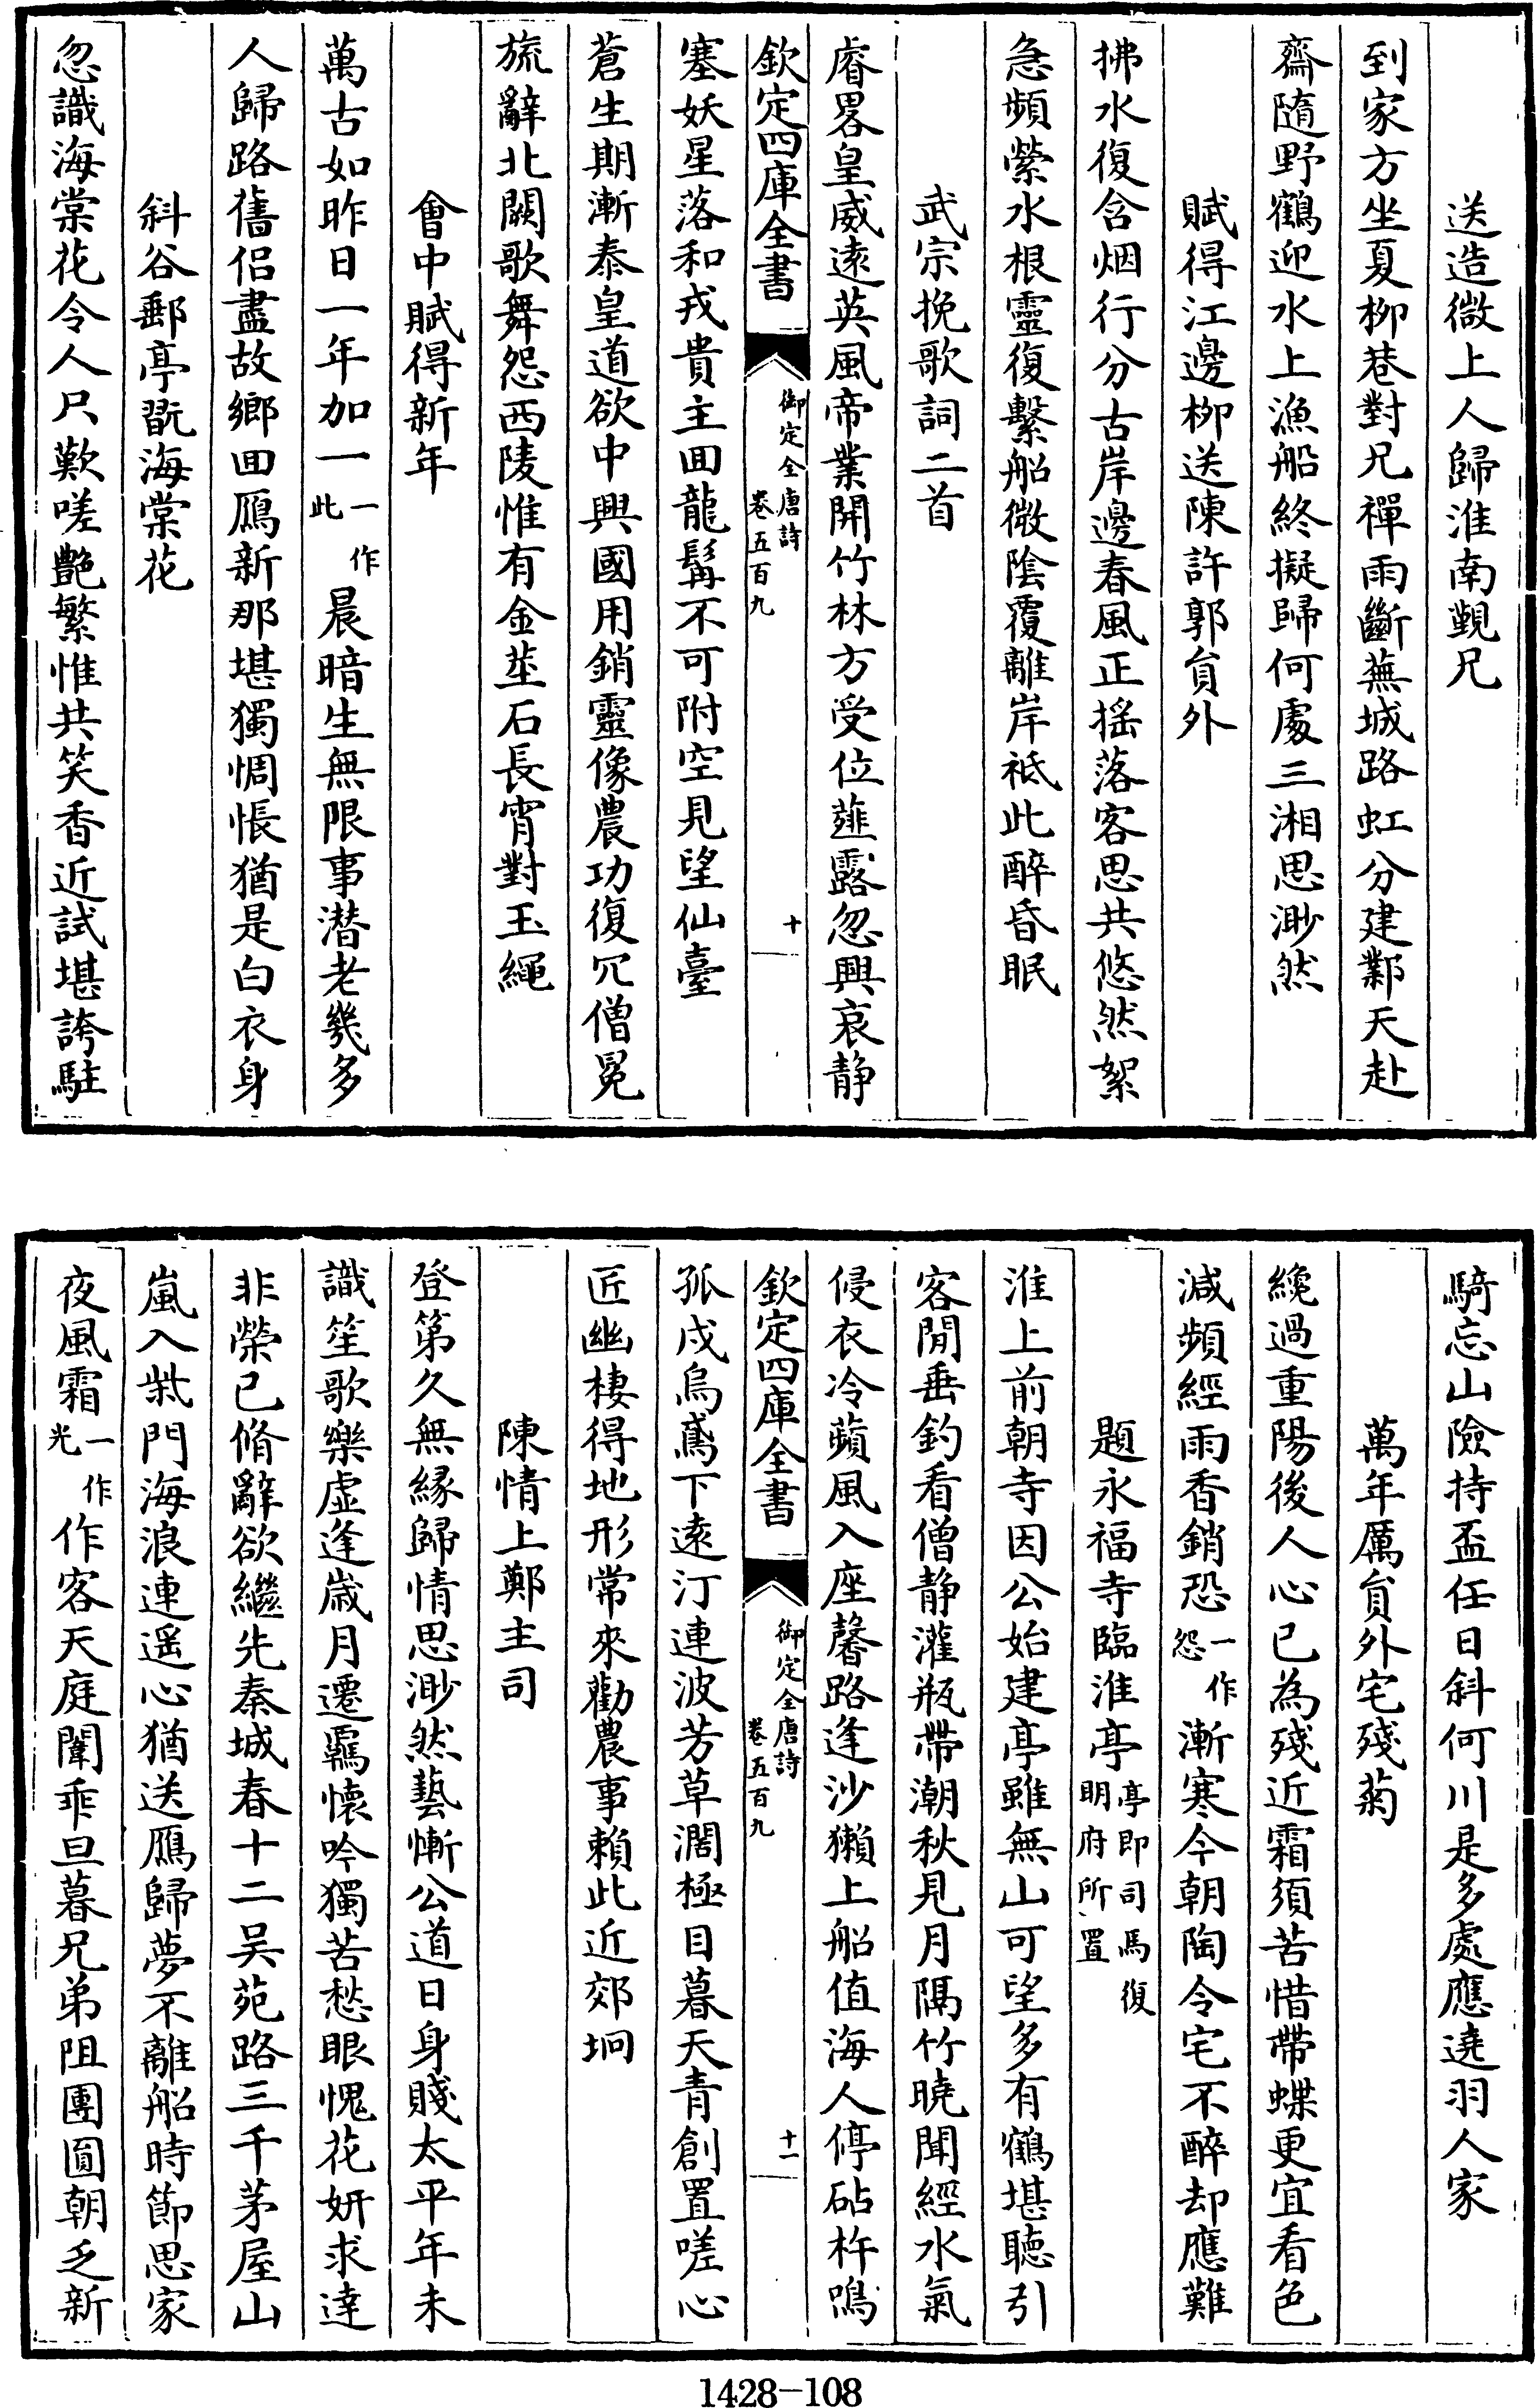 送造微上人歸淮南覲兄
到家方坐夏柳巷對兄禪雨斷蕪城路虹分建鄴天赴
齋隨野鶴迎水上漁船終擬歸何處三湘思渺然
賦得江邊柳送陳許郭貟外
拂水復含烟行分古岸邊春風正揺落客思共悠然絮
急頻縈水根靈復繫船微隂覆離岸袛此醉昏眠
武宗挽歌詞二首
睿畧皇威逺英風帝業開竹林方受位薤露忽興哀静
欽定四庫全書
御定全唐詩
卷五百九
十
塞妖星落和戎貴主囬龍髯不可附空見望仙臺
蒼生期漸泰皇道欲中興國用銷靈像農功復冗僧冕
旒辭北闕歌舞怨西陵惟有金莖石長宵對玉繩
㑹中賦得新年
萬古如昨日一年加一一作此晨暗生無限事潛老幾多
人歸路舊侶盡故鄉囬鴈新那堪獨惆悵猶是白衣身
斜谷郵亭翫海棠花
忽識海棠花令人只歎嗟艶繁惟共笑香近試堪誇駐
騎忘山險持盃任日斜何川是多處應遶羽人家
萬年厲貟外宅殘菊
纔過重陽後人心已為殘近霜須苦惜帶蝶更宜看色
減頻經雨香銷恐一作怨漸寒今朝陶令宅不醉却應難
題永福寺臨淮亭亭即司馬復明府所置
淮上前朝寺因公始建亭雖無山可望多有鶴堪聽引
客閒垂釣看僧静灌瓶帶潮秋見月隔竹曉聞經水氣
侵衣冷蘋風入座馨路逢沙獺上船值海人停砧杵鳴
欽定四庫全書
御定全唐詩
卷五百九
十一
孤戍烏鳶下逺汀連波芳草濶極目暮天青創置嗟心
匠幽棲得地形常來勸農事賴此近郊坰
陳情上鄭主司
登第久無縁歸情思渺然藝慚公道日身賤太平年未
識笙歌樂虚逢嵗月遷羈懷吟獨苦愁眼愧花妍求達
非榮已脩辭欲繼先秦城春十二吴苑路三千茅屋山
嵐入柴門海浪連遥心猶送鴈歸夢不離船時節思家
夜風霜一作光作客天庭闈乖旦暮兄弟阻團圓朝乏新
1428-108